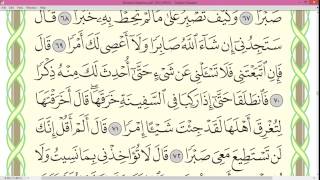 صَبْرًا ٦٧ وَكَيْفَ تَصْبِرُ عَلَىٰ مَا لَمْ تُحِطْ بِهِۦ خُبْرًا ٦٨ قَالَ
سَتَجِدُنِىٓ إِن شَآءَ ٱللَّهُ صَابِرًا وَلَآ أَعْصِى لَكَ أَمْرًا ٦٩ قَالَ
فَإِنِ ٱتَّبَعْتَنِى فَلَا تَسْـَٔلْنِى عَن شَىْءٍ حَتَّىٰٓ أُحْدِثَ لَكَ مِنْهُ ذِكْرًا
٧٠ فَٱنطَلَقَا حَتَّىٰٓ إِذَا رَكِبَا فِى ٱلسَّفِينَةِ خَرَقَهَا قَالَ أَخَرَقْتَهَا
لِتُغْرِقَ أَهْلَهَا لَقَدْ جِئْتَ شَيْـًٔا إِمْرًا ٧١ قَالَ أَلَمْ أَقُلْ إِنَّكَ
لَن تَسْتَطِيعَ مَعِىَ صَبْرًا ٧٢ قَالَ لَا تُؤَاخِذْنِى بِمَا نَسِيتُ وَلَا